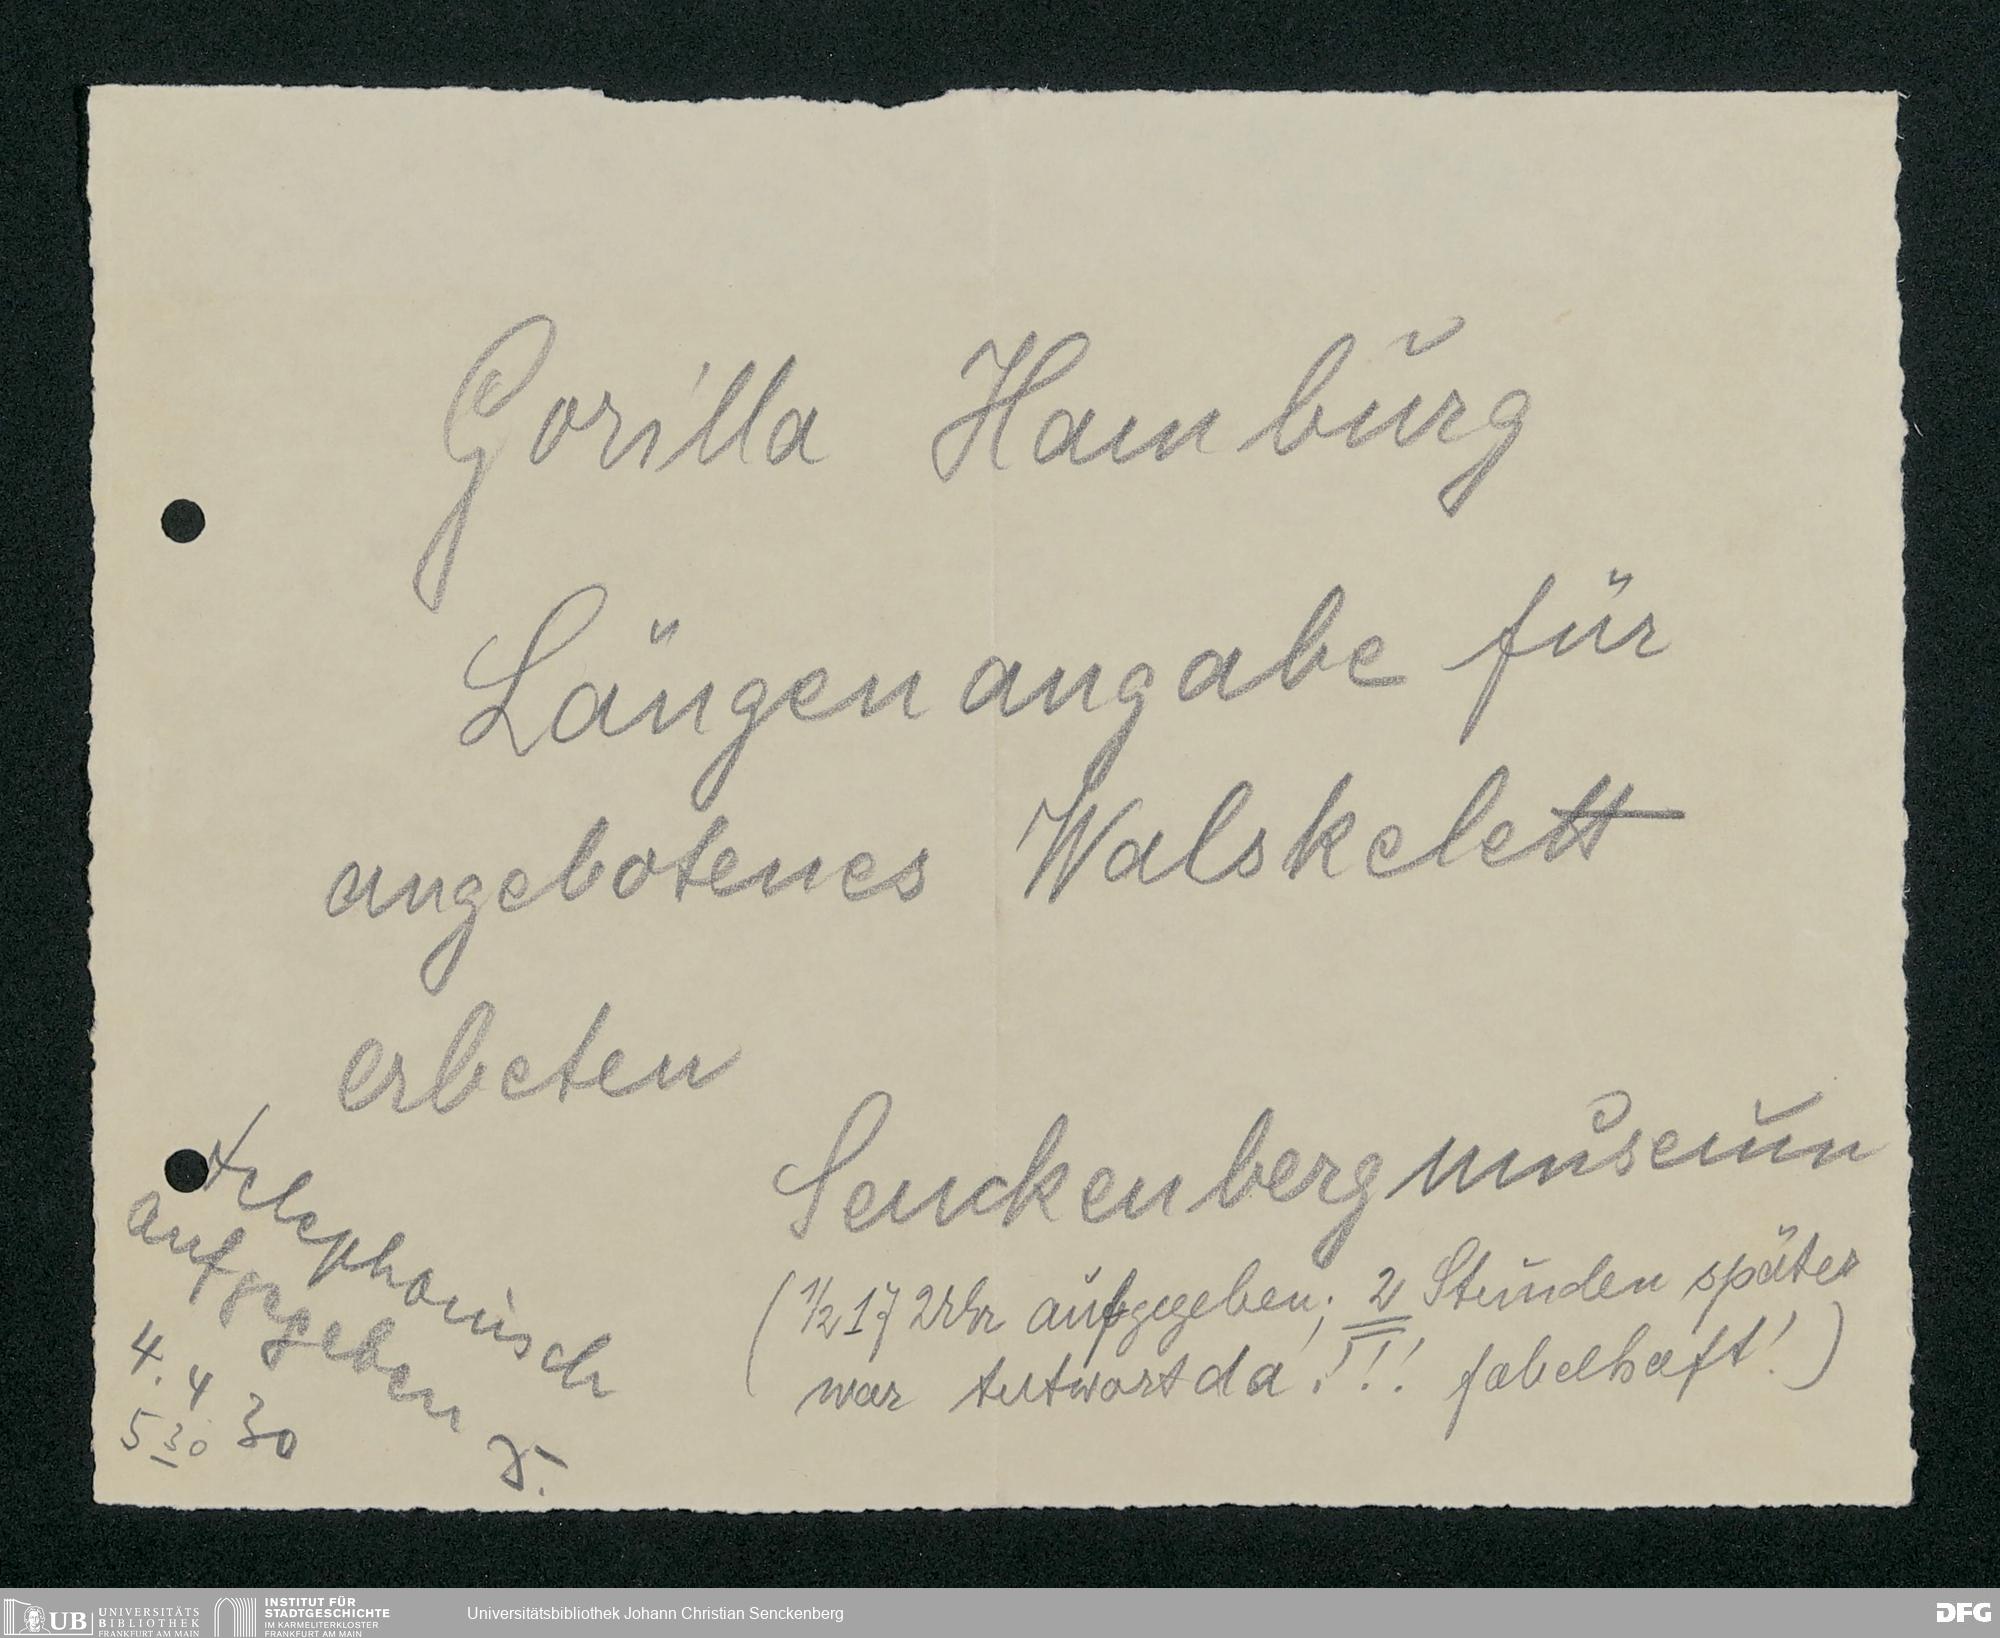 Gorilla Hamburg
Längenangabe für
angebotenes Walskelett
erbeten
Senckenbergmuseum
(1/2 17 Uhr aufgegeben; 2 Stunden später
war Antwort da!!! fabelhaft!)
telephonisch
aufgegeben
4. 4 30
5 30
UB UNIVERSITÄTS
BIBLIOTHEK
FRANKFURT AM MAIN
INSTITUT FÜR
STADTGESCHICHTE
IM KARMELITERKLOSTER
FRANKFURT AM MAIN
Universitätsbibliothek Johann Christian Senckenberg
DFG